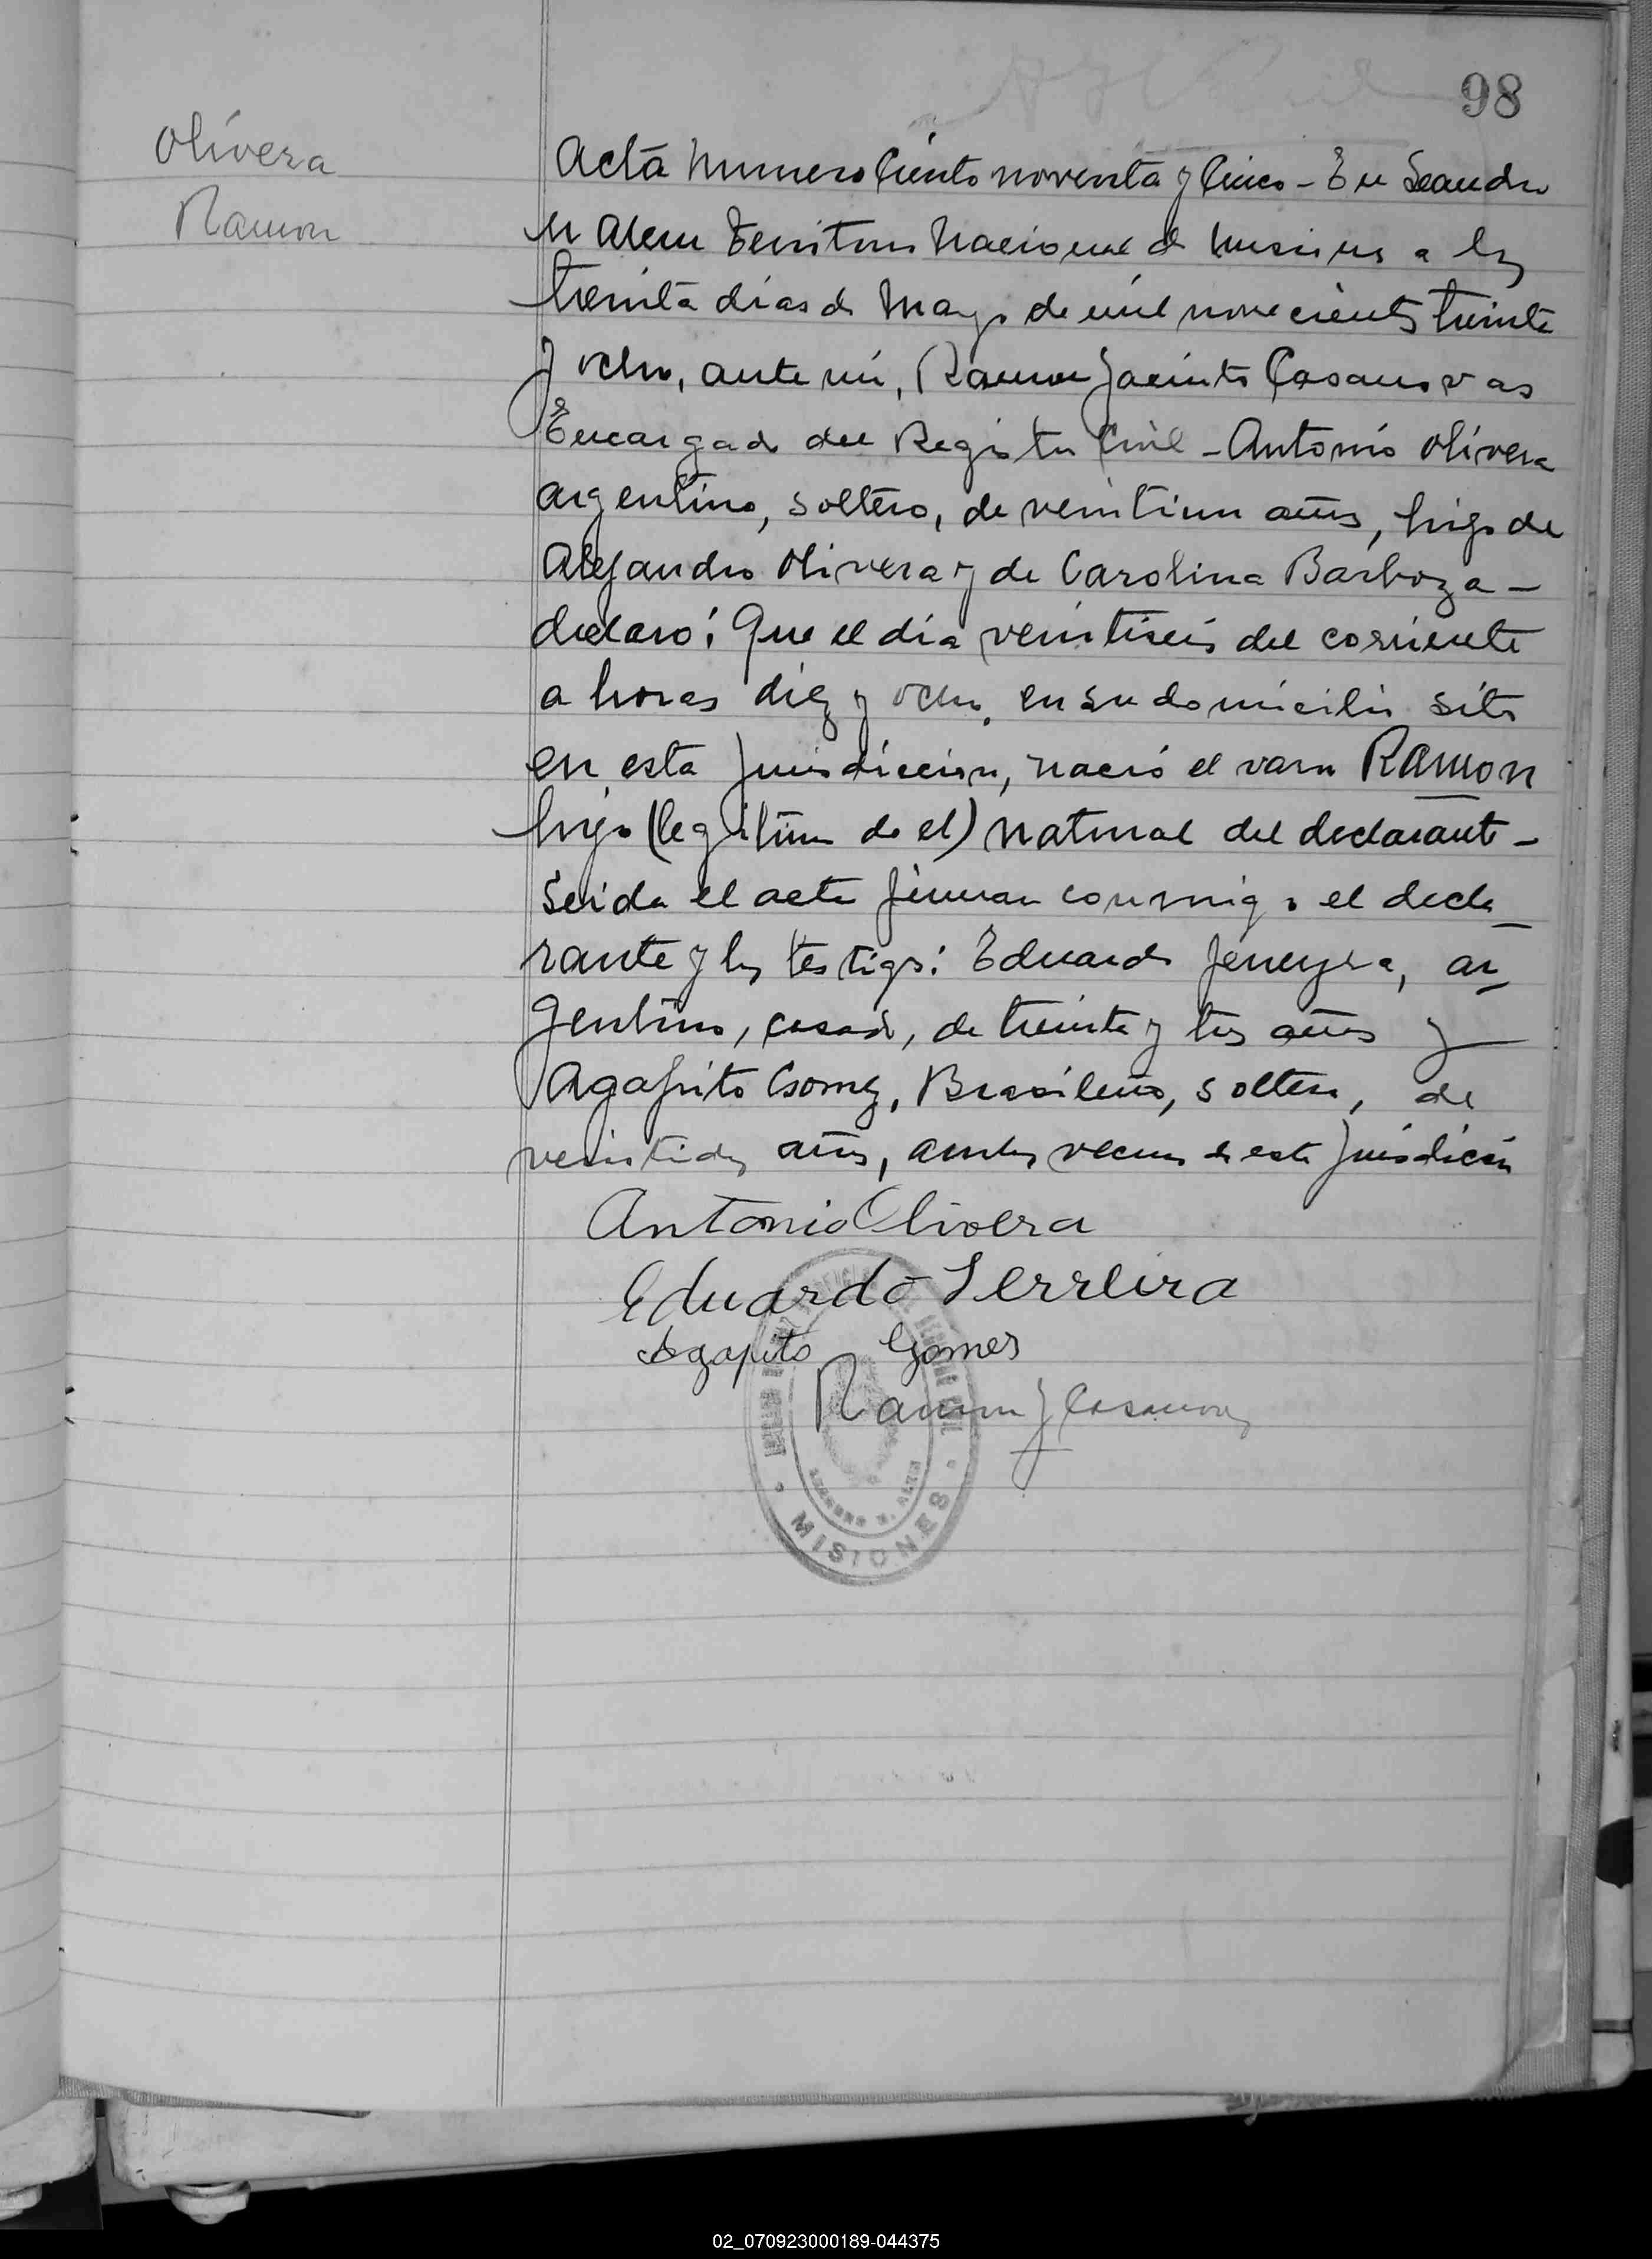 98
Olivera
Ramon
Acta numero Ciento noventa y Cinco - En Leandro
N Alem Territorio Nacional de Misiones a los
treinta dias de Mayo de mil novecientos treinta
y ocho, ante mi, Ramon Jacinto Casanovas
Encargado del Registro Civil - Antonio Olivera
argentino, soltero, de veintiun años, hijo de
Alejandro Olivera y de Carolina Barboza -
declaró: Que el dia veintiseis del corriente
a horas diez y ocho, en su domicilio sito
en esta Jurisdiccion, nació el varon RAMON
hijo (legitimo de el) natural del declarante -
Leida el acta firman conmigo el decla
rante y los testigos: Eduardo Ferreyra, ar
gentino, casado, de treinta y tres años y
Agapito Gomez, Brasileño, soltero, de
veintidos años, ambos vecinos de esta Jurisdicción
Antonio Olivera
Eduardo Ferreira
Agapito Gomes
Ramon J Casanovas
LEANDRO N. ALEM
MISIONES
02_070923000189-044375